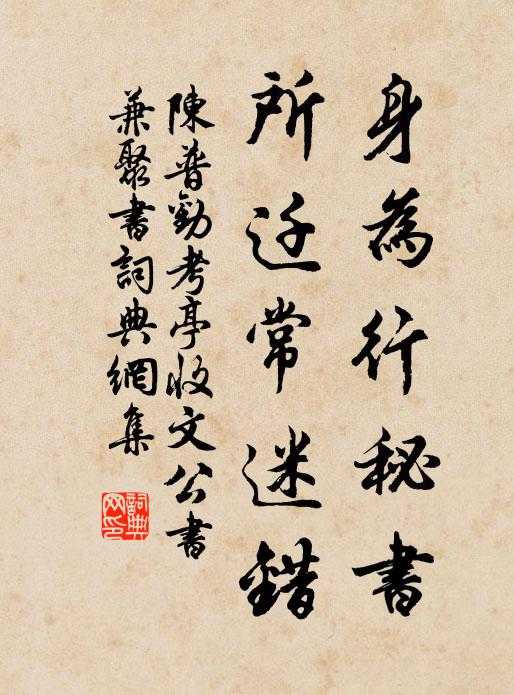 身為行秘書
所迕常迷錯
陳普勸考亭收文公書
兼聚書詞典網集
詞典网印